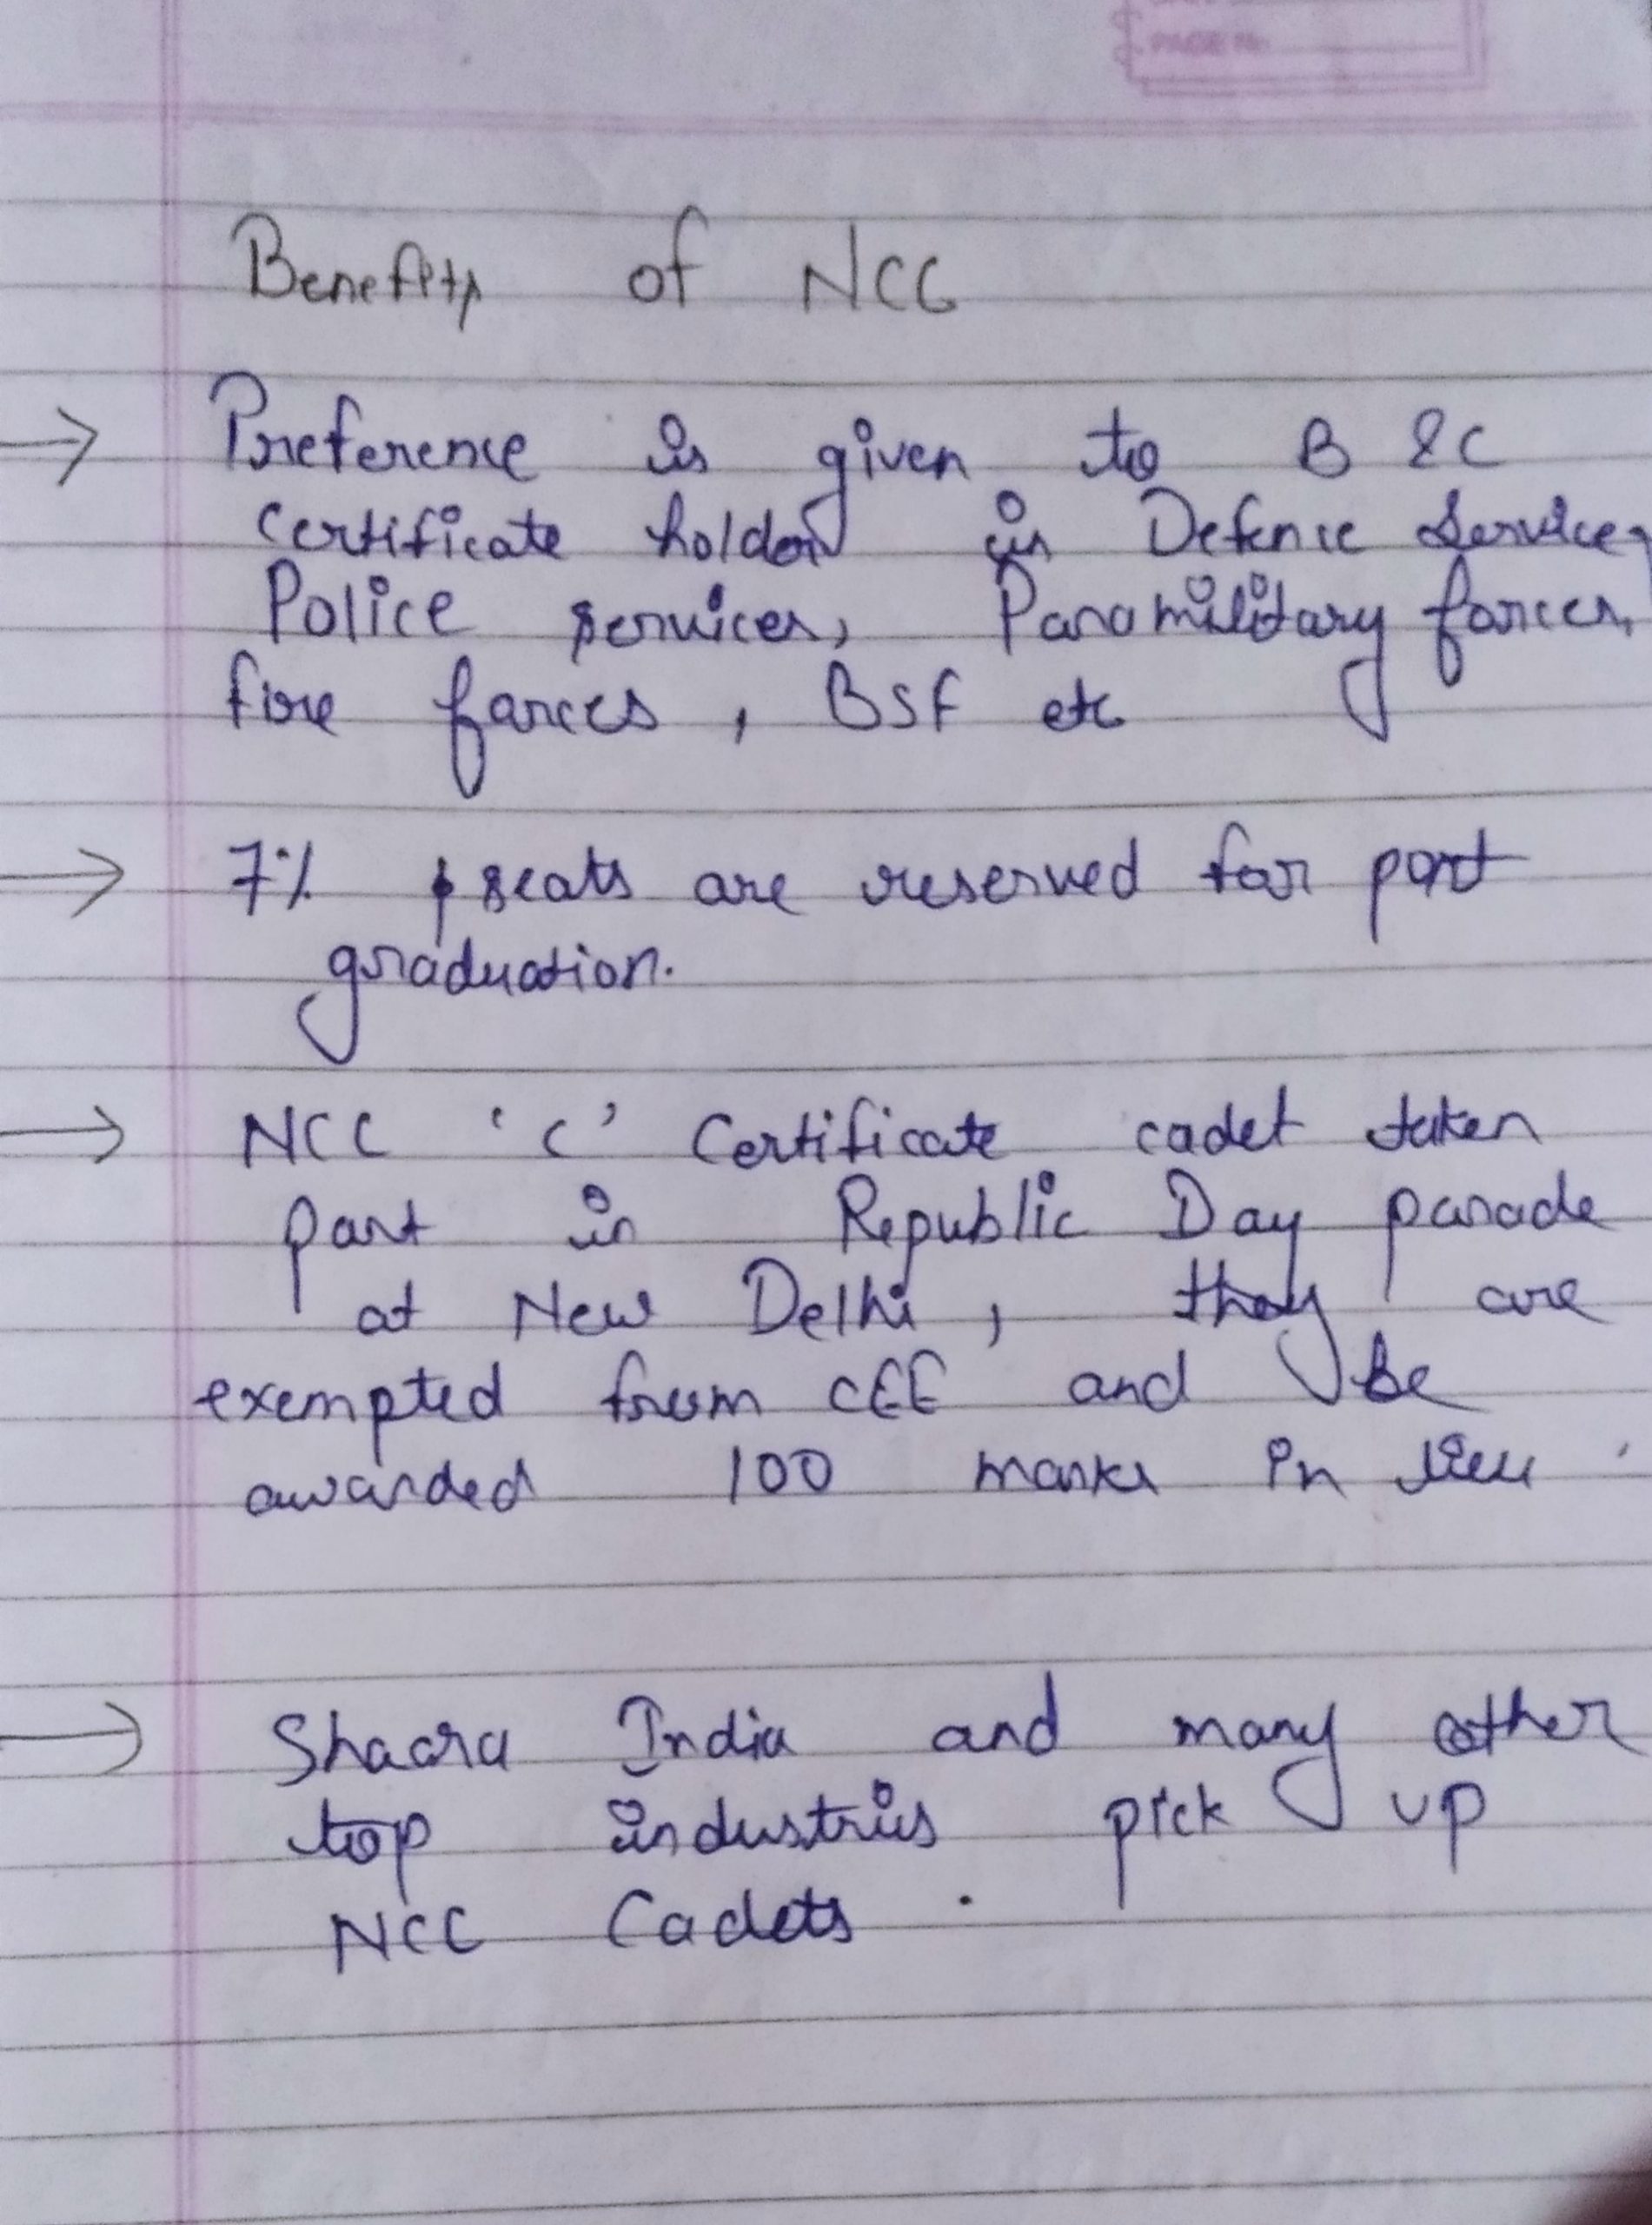 PAGE No.
Benefits of NCC
→ Preference is given to B & C
certificate holder in Defence Service,
Police services, Paramilitary forces,
fire forces, BSF etc
→ 7% seats are reserved for post
graduation.
→ NCC 'C' Certificate cadet taken
part in Republic Day parade
at New Delhi, they are
exempted from CEE and be
awarded 100 marks in lieu.
→ Shaara India and many other
top industries pick up
NCC Cadets.